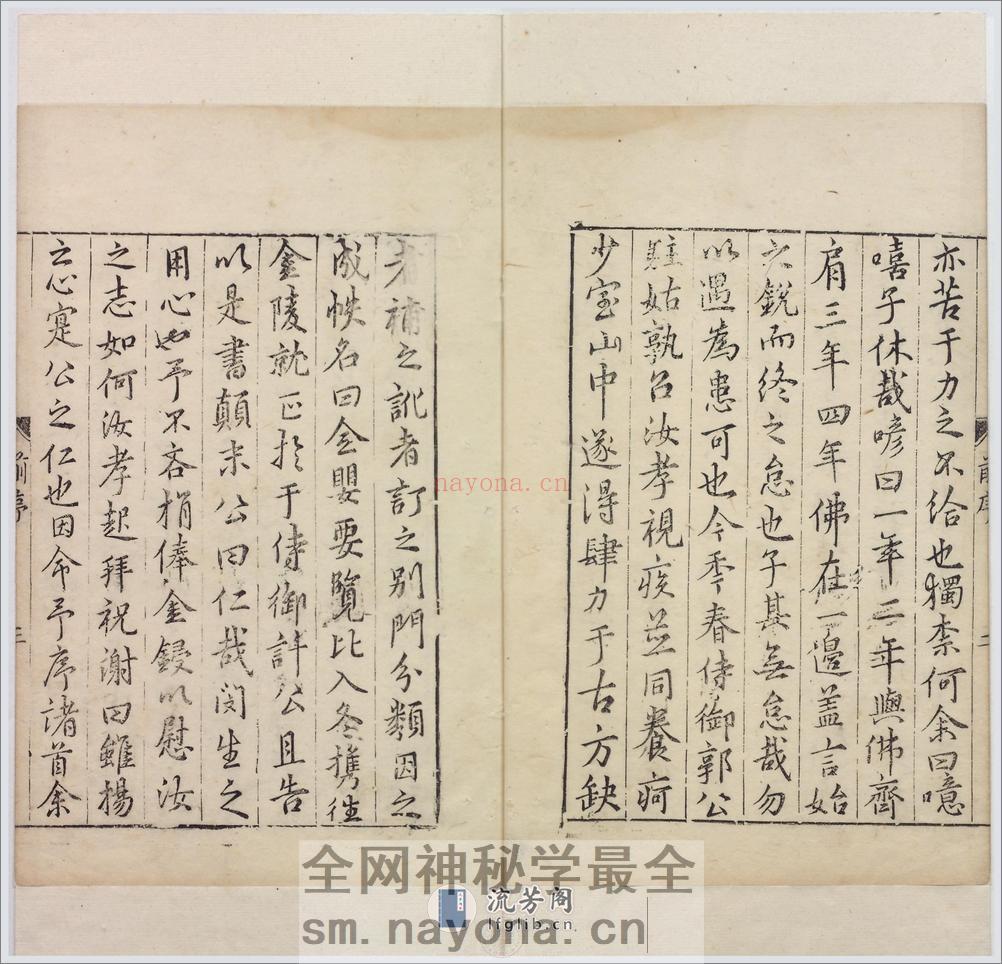 亦苦于力之不給也獨柰何余曰噫
嘻子休哉嗙曰一年二年與佛齊
肩三年四年佛在一邊盖言始
之銳而終之怠也子其無怠哉勿
以遇為患可也今季春侍御郭公
駐姑孰召汝孝視疾並同養疴
少室山中遂得肆力于古方缺
者補之訛者訂之別門分類因之
成帙名曰全嬰要覽比入冬攜往
金陵就正於于侍御許公且告
以是書顛末公曰仁哉閔生之
用心也予不吝捐俸金鋟以慰汝
之志如何汝孝起拜祝謝曰雖揚
云心寔公之仁也因命予序諸首余
前序
二
前序
三
nayona.cn
全网神秘学最全
流芳阁
lfglib.cn
sm.nayona.cn